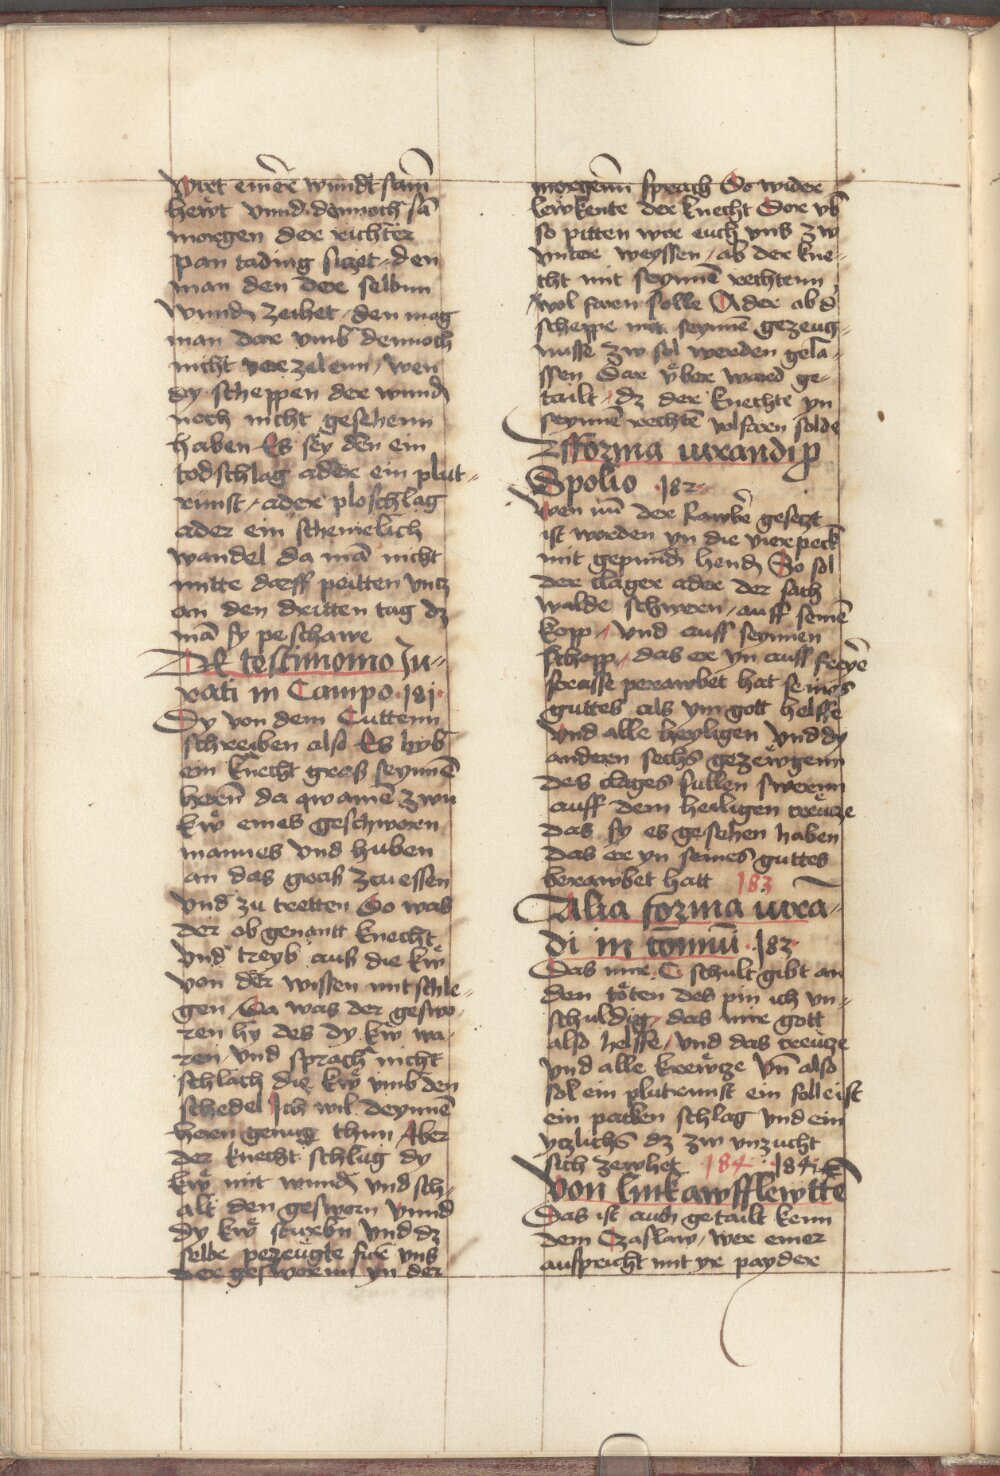 Wirt eimer wundt sam̄
hewt vnnd dennoch sā
morgen der richter
pan tading siczet den
man den der selbnn
Wundn̄ zeihet den mag
man dar vmb dennoch
nicht verzelenn / wen
dy scheppen der wundn̄
noch nicht gesehenn
haben Es sey den ein
todschlag ader ein plut-
runst / ader ploschlag
ader ein schemelich
wandel da mā nicht
mitte darff peitten vncz
an den dritten tag dz
mā sy peschawe
De testimonio Ju-
rati in Campo · 181 ·
Dy von dem Cuttenn
schreiben also Es hyb
ein knecht gras seynnē
herrn̄ da qwamē zwu
kw eines geschworn
mannes vnd huben
an das gras zcu essen
vnd zu tretten So was
der obgenantt knecht
vnd treyb aus die kw
von der wissen mit schle-
gen / Da was der geswo-
ren hy des dy kw wa-
ren vnd sprach nicht
schlach die kw vmb den
schedel Ich wil deynnē
hern genug thun Aber
der knecht schlug dy
kw mit wundn̄ vnd sch-
alt den gesworn vnnd
dy kw sturbn̄ vnd dz
selbe pezeugte fur vns
der geswornn yn der
morgenn̄ sprach So wider
lewkente der knecht Dor vb̄
so pitten wir euch vns zw
vnter weyssen / ab der kne-
cht mit seynnē rechtenn
wol faren solle Ader ab d
scheppe mit seynnē gezeug-
nusse zw sol werden gela-
ssen Dar vber ward ge-
tailt / dz der knechte yn
seynnē rechtē volfaren solde
Fforma iurandi ꝓ
Spolio · 182 ·
Wen nū der Rawbr̄ gesetzt
ist worden yn die vier peck
mit gepundn̄ hendn̄ So sol
der clager ader der sach
walde schweren / auff seinē
kopp / vnd auff seynnen
schopp / das er yn auff freyē
strasse perawbet hat seines
guttes als ym gott helffe
vnd alle heyligen vnd dy
anderen sechs gezewgenn
des clages sullen swerenn
auff dem heiligen creucze
das sy es gesehen haben
das er yn seines guttes
berawbet hatt 183
Alia forma iura-
di in cōmuni · 183 ·
Das mir · C · schult gibt an
den toten des pin ich vn-
schuldig / das mir gott
also helffe / vnd das creucze
vnd alle krewcze vn̄ also
sol ein plutrunst ein folleist
ein packen schlag vnd ein
yczlichs dz zw vnzucht
sich zewhet 184 · 184 ·
Von linkawfflewttē
Das ist auch getailt kenn
dem Czaslaw / wer einer
aufspricht mit yr payder